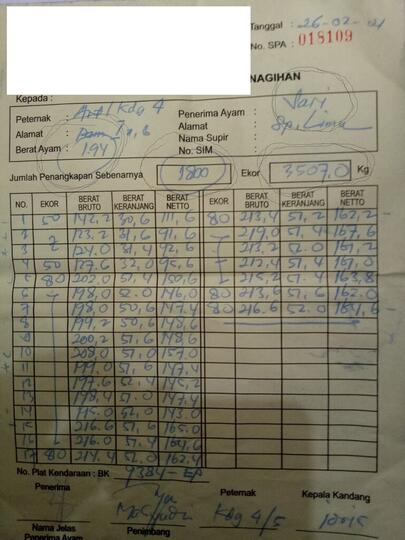 Tanggal : 26-02-21
No. SPA : 018109
NAGIHAN
Kepada :
Peternak : Kdg 4
Alamat :
Berat Ayam : 1.94
Penerima Ayam : Sari
Alamat : Sp. Lima
Nama Supir :
No. SIM
Jumlah Penangkapan Sebenarnya 1800 Ekor 3507,0 Kg
NO. EKOR BERAT BRUTO BERAT KERANJANG BERAT NETTO EKOR BERAT BRUTO BERAT KERANJANG BERAT NETTO
1 50 142,2 30,6 111,6 80 213,4 51,2 162,2
2 123,2 31,6 91,6 219,0 51,4 167,6
3 124,0 31,4 92,6 213,2 52,0 161,2
4 50 127,6 32,0 95,6 212,4 51,4 161,0
5 80 202,0 51,4 150,6 215,2 51,4 163,8
6 198,0 52,0 146,0 80 213,6 51,6 162,0
7 198,0 50,6 147,4 80 216,6 52,0 164,6
8 199,2 50,6 148,6
9 200,2 51,6 148,6
10 208,0 51,0 157,0
11 199,0 51,6 147,4
12 197,6 52,4 145,2
13 198,4 51,0 147,4
14 195,0 52,0 143,0
15 216,6 51,6 165,0
16 216,0 51,4 164,6
17 80 214,4 52,0 162,4
No. Plat Kendaraan : BK 9384-EP
Penerima Peternak Kepala Kandang
Kdg 4/5
Nama Jelas Penimbang
Penerima Ayam